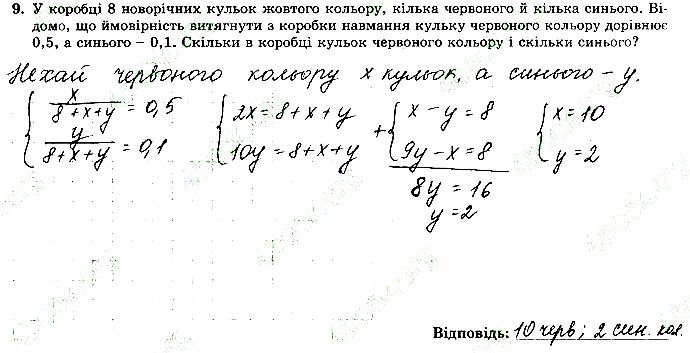 9. У коробці 8 новорічних кульок жовтого кольору, кілька червоного й кілька синього. Ві-
домо, що ймовірність витягнути з коробки навмання кульку червоного кольору дорівнює
0,5, а синього – 0,1. Скільки в коробці кульок червоного кольору і скільки синього?
Нехай червоного кольору x кульок, а синього – y.
{ x/(8+x+y) = 0,5 { 2x = 8+x+y + { x – y = 8 { x = 10
{ y/(8+x+y) = 0,1 { 10y = 8+x+y { 9y – x = 8 { y = 2
8y = 16
y = 2
Відповідь: 10 черв; 2 син. кол.